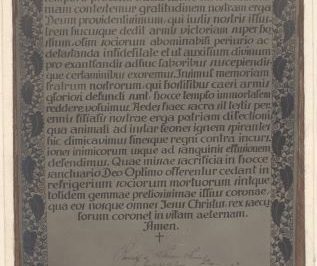 niam contestemur gratitudinem nostram erga
Deum providentissimum, qui iustis nostris illus-
trem hucusque dedit armis victoriam super ho-
stium, olim sociorum abominabili periurio ac
detestanda infidelitate et ut auxilium divinum
pro exantlandis adhuc laboribus suscipiendis-
que certaminibus exoremus. Inivimus memoriam
fratrum nostrorum, qui hostilibus caesi armis
gloriosi defuncti sunt hocce templo immortalem
reddere voluimus. Aedes haec sacra sit testis per-
ennis filialis nostrae erga patriam dilectionis
qua animati ad instar leonei ignem spirantes
hic dimicavimus finesque regni contra incur-
siones inimicorum usque ad sanguinis effusionem
defendimus. Quae missae sacrificia in hocce
sanctuario Deo Optimo offerentur cedant in
refrigerium sociorum mortuorum sintque
totidem gemmae pretiosissimae illius coronae,
qua eos nosque omnes Jesus Christus rex iaecu-
forum coronet in vitam aeternam.
Amen.